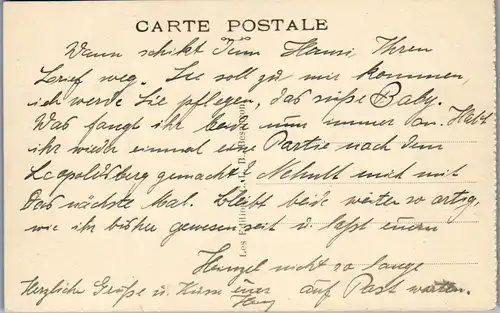 CARTE POSTALE
Wann schikt denn Hansi Ihren
Brief weg. Sie soll zu mir kommen,
ich werde Sie pflegen, das süße Baby.
Was fangt ihr beide nun immer an. Habt
ihr wieder einmal eine Partie nach dem
Leopoldsberg gemacht? Nehmt mich mit
das nächste Mal. Bleibt beide weiter so artig,
wie ihr bisher gewesen seit u. laßt euern
Heinzel nicht so lange
auf Post warten.
Herzliche Grüße u. Küsse euer
Les Editions